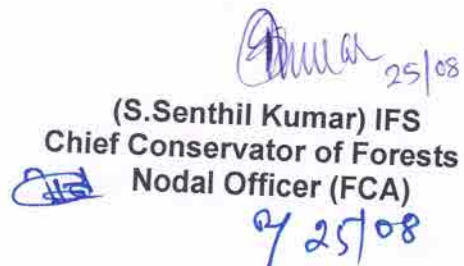 25/08
(S.Senthil Kumar) IFS
Chief Conservator of Forests
Nodal Officer (FCA)
25/08